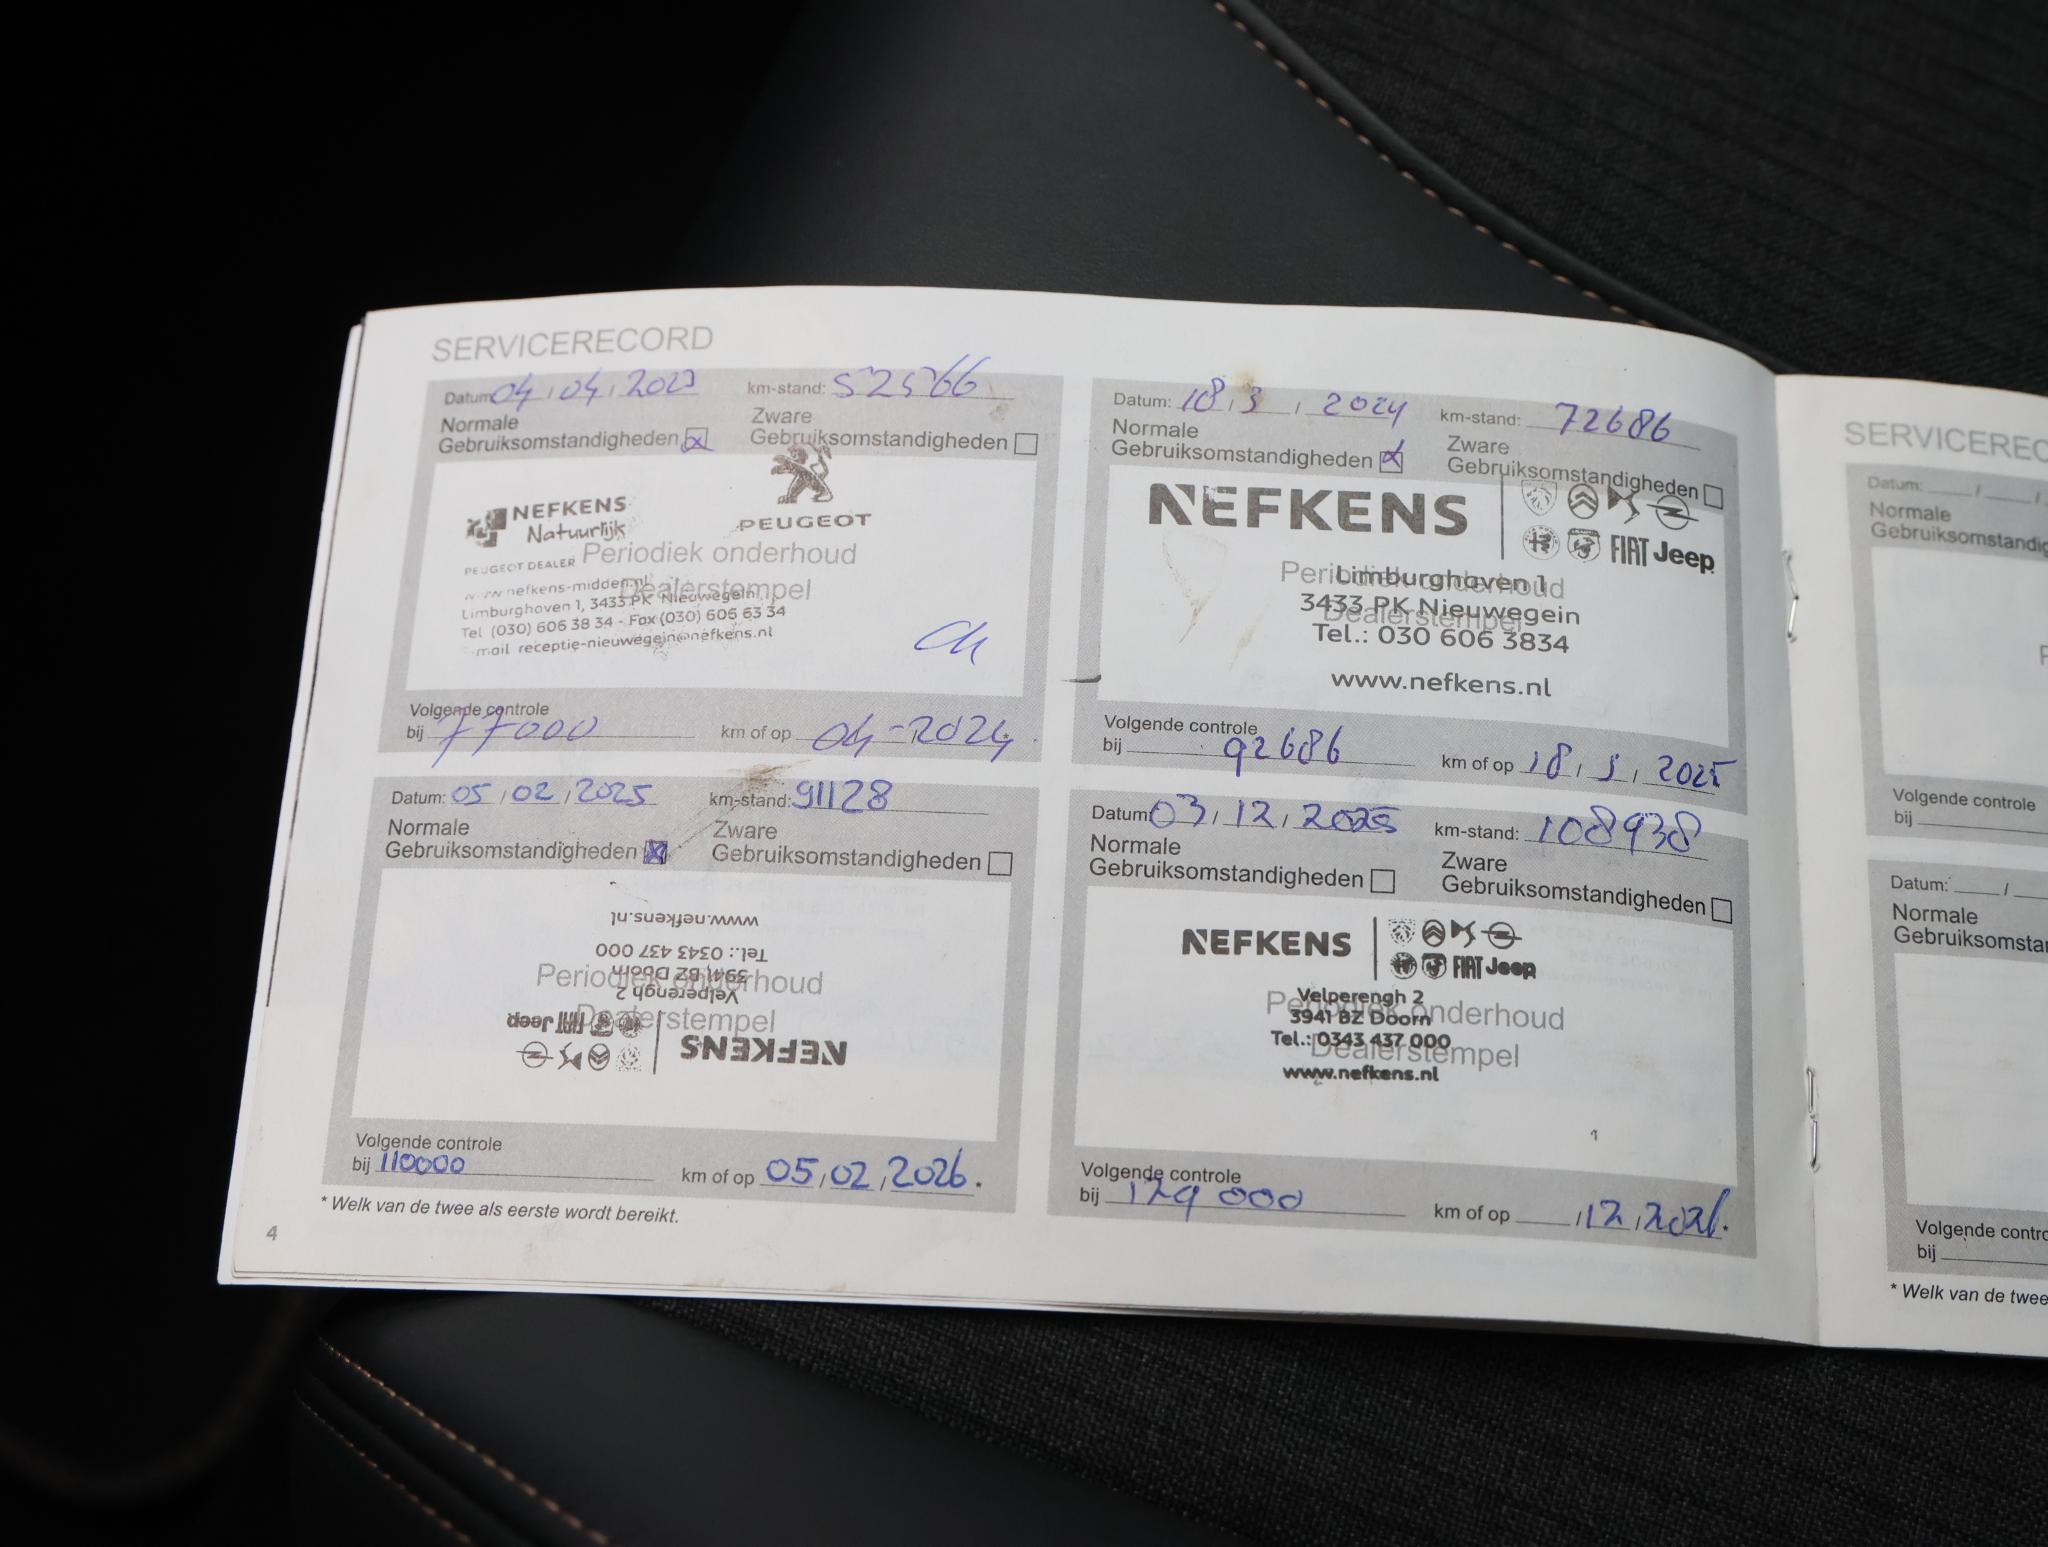 SERVICERECORD
Datum: 04 / 04 / 2023 km-stand: 52566
Normale Zware
Gebruiksomstandigheden x Gebruiksomstandigheden
NEFKENS
Natuurlijk
PEUGEOT
PEUGEOT DEALER
Periodiek onderhoud
Dealerstempel
www.nefkens-midden.nl
Limburghoven 1, 3433 PK Nieuwegein
Tel (030) 606 38 34 - Fax (030) 606 63 34
-mail receptie-nieuwegein@nefkens.nl
Volgende controle
bij 77000 km of op 04-2024.
Datum: 18 / 3 / 2024 km-stand: 72686
Normale Zware
Gebruiksomstandigheden x Gebruiksomstandigheden
NEFKENS
FIAT Jeep
Periodiek onderhoud
Dealerstempel
Limburghoven 1
3433 PK Nieuwegein
Tel.: 030 606 3834
www.nefkens.nl
Volgende controle
bij 92686 km of op 18 / 3 / 2025
Datum: 05 / 02 / 2025 km-stand: 91128
Normale Zware
Gebruiksomstandigheden x Gebruiksomstandigheden
Periodiek onderhoud
Dealerstempel
NEFKENS
FIAT Jeep
Velperengh 2
3941 BZ Doorn
Tel.: 0343 437 000
www.nefkens.nl
Volgende controle
bij 110000 km of op 05 / 02 / 2026.
Datum: 03 / 12 / 2025 km-stand: 108938
Normale Zware
Gebruiksomstandigheden Gebruiksomstandigheden
NEFKENS
FIAT Jeep
Periodiek onderhoud
Dealerstempel
Velperengh 2
3941 BZ Doorn
Tel.: 0343 437 000
www.nefkens.nl
Volgende controle
bij 129 000 km of op / 12 / 2026.
* Welk van de twee als eerste wordt bereikt.
4
SERVICEREC
Datum: / /
Normale
Gebruiksomstandig
Volgende controle
bij
Datum: /
Normale
Gebruiksomsta
Volgende contro
bij
* Welk van de twee